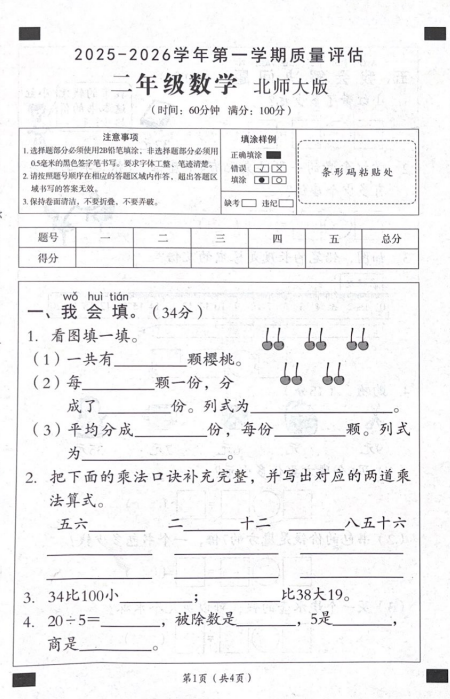 2025-2026学年第一学期质量评估
二年级数学 北师大版
(时间: 60分钟 满分: 100分)
注意事项
1.选择题部分必须使用2B铅笔填涂, 非选择题部分必须用
0.5毫米的黑色签字笔书写。要求字体工整, 笔迹清楚。
2.请按照题号顺序在相应的答题区域内作答, 超出答题区
域书写的答案无效。
3.保持卷面清洁, 不要折叠, 不要弄破。
填涂样例
正确填涂
错误
填涂
缺考 违纪
条形码粘贴处
题号 一 二 三 四 五 总分
得分
wǒ huì tián
一、我会填。(34分)
1. 看图填一填。
(1) 一共有________颗樱桃。
(2) 每________颗一份, 分
成了________份。列式为________。
(3) 平均分成________份, 每份________颗。列式
为________。
2. 把下面的乘法口诀补充完整, 并写出对应的两道乘
法算式。
五六________ 二________十二 ________八五十六
3. 34比100小________; ________比38大19。
4. 20÷5=________, 被除数是________, 5是________,
商是________。
第1页 (共4页)